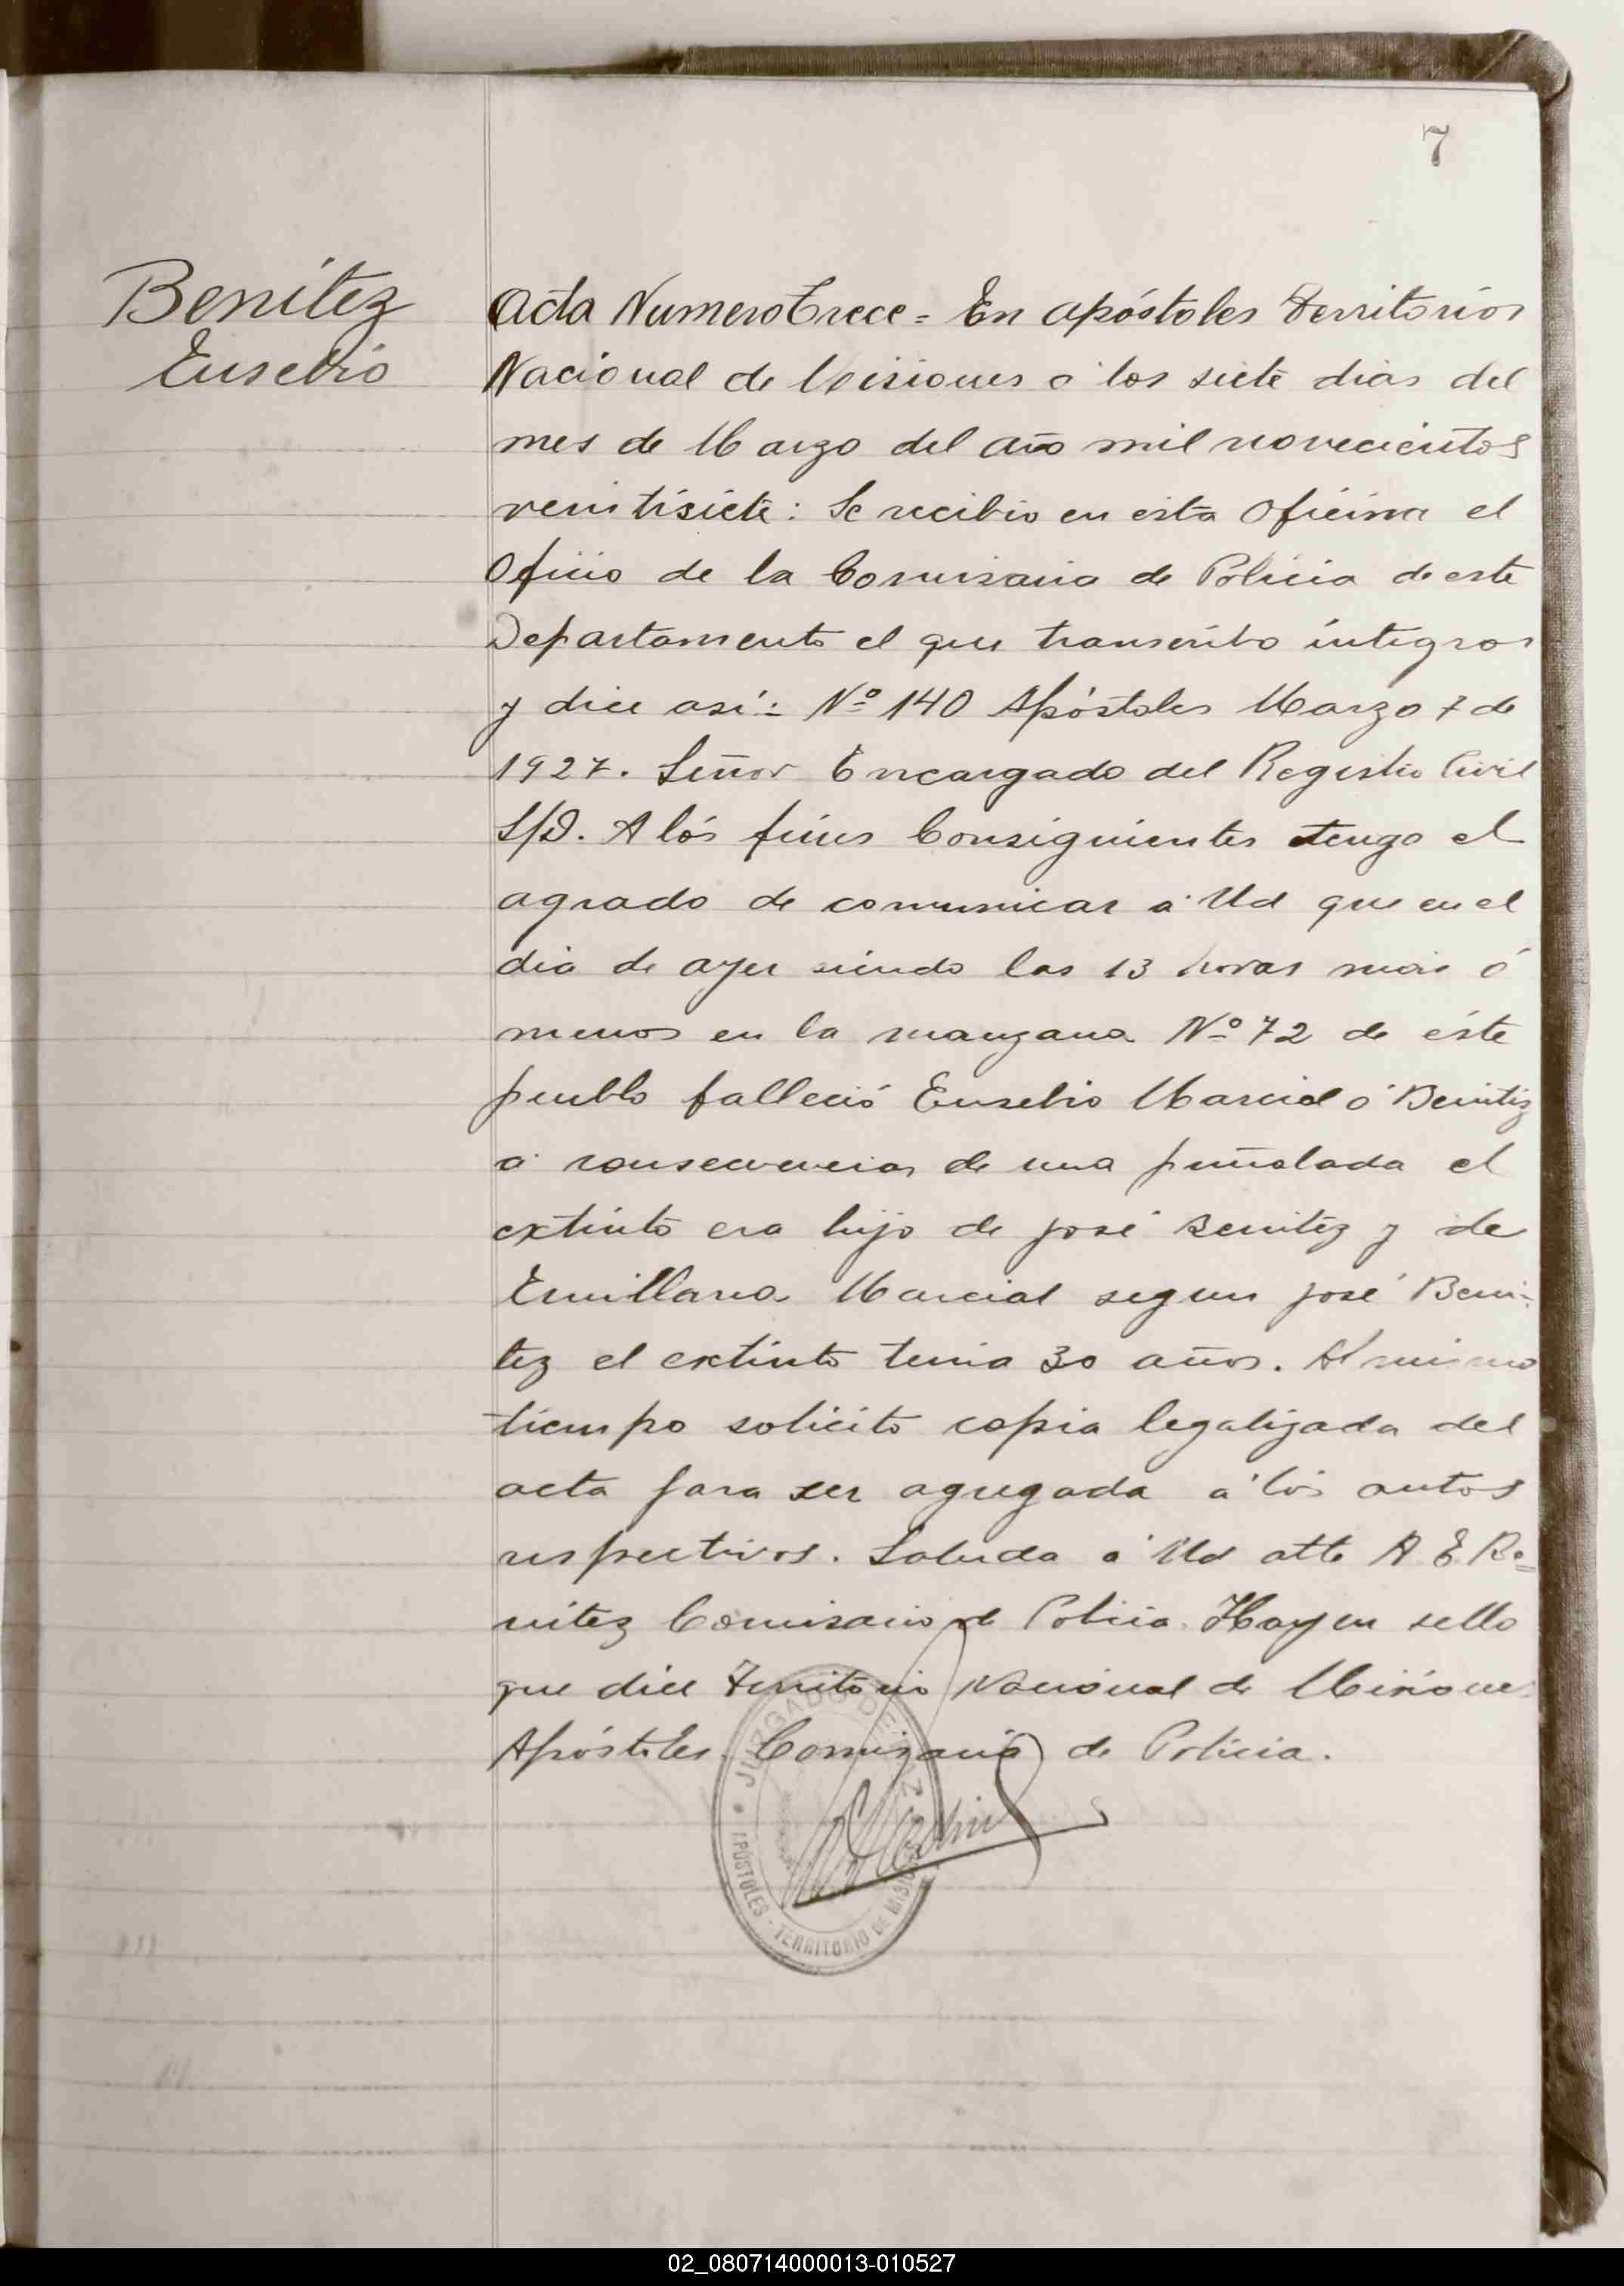 7
Benítez
Eusebio
Acta Numero Trece = En Apóstoles Territorios
Nacional de Misiones a los siete dias del
mes de Marzo del año mil novecientos
veintisiete: Se recibio en esta Oficina el
Oficio de la Comisaria de Policia de este
Departamento el que transcribo integros
y dice así: Nº 140 Apóstoles Marzo 7 de
1927. Señor Encargado del Registro Civil
S/D. A lós fines Consiguientes tengo el
agrado de comunicar a Ud que en el
dia de ayer siendo las 13 horas mas ó
menos en la manzana Nº 72 de éste
pueblo falleció Eusebio Marcial ó Benitez
a consecuencias de una puñalada el
extinto era hijo de José Benitez y de
Emiliana Marcial segun José Beni-
tez el extinto tenia 30 años. Al mismo
tiempo solicito copia legalizada del
acta para ser agregada á los autos
respectivos. Saluda a Ud atte A. E. Be=
nitez Comisario de Policia. Hay un sello
que dice Territorio Nacional de Misiones
Apóstoles. Comisaria de Policia.
JUZGADO DE PAZ
APÓSTOLES - TERRITORIO DE MISIONES
02_080714000013-010527